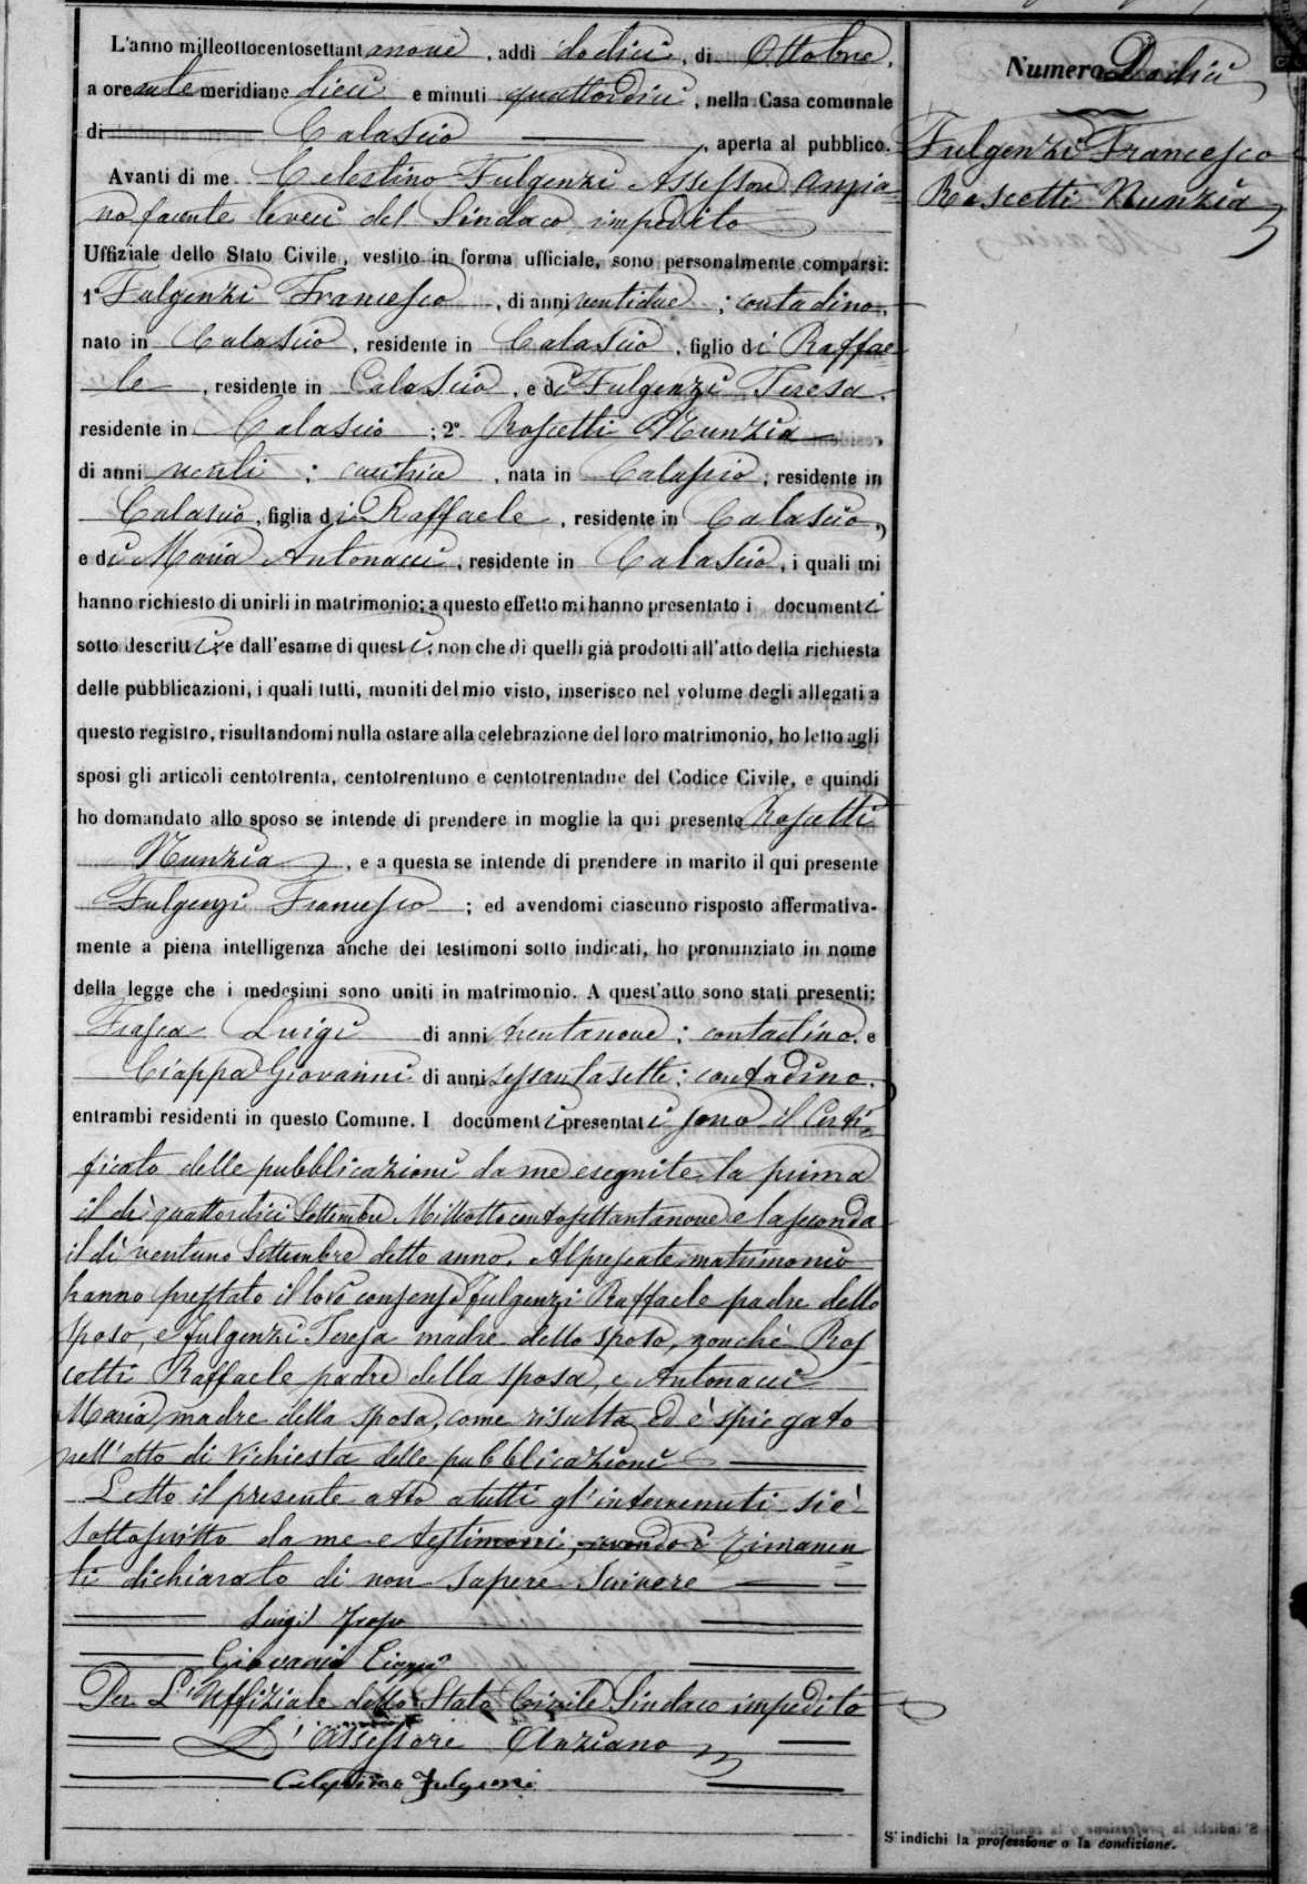 L'anno milleottocentosettantanove, addì dodici, di Ottobre,
a ore ante meridiane dieci e minuti quattordici, nella Casa comunale
di Calascio, aperta al pubblico.
Avanti di me Celestino Fulgenzi Assessore Anzia=
no facente le veci del Sindaco impedito
Uffiziale dello Stato Civile, vestito in forma ufficiale, sono personalmente comparsi:
1° Fulgenzi Francesco, di anni ventidue; contadino,
nato in Calascio, residente in Calascio, figlio di Raffae=
le, residente in Calascio, e di Fulgenzi Teresa,
residente in Calascio; 2° Roscetti Nunzia,
di anni venti; cucitrice, nata in Calascio, residente in
Calascio, figlia di Raffaele, residente in Calascio,
e di Maria Antonacci, residente in Calascio, i quali mi
hanno richiesto di unirli in matrimonio; a questo effetto mi hanno presentato i documenti
sotto descritti; e dall'esame di questi, non che di quelli già prodotti all'atto della richiesta
delle pubblicazioni, i quali tutti, muniti del mio visto, inserisco nel volume degli allegati a
questo registro, risultandomi nulla ostare alla celebrazione del loro matrimonio, ho letto agli
sposi gli articoli centotrenta, centotrentuno e centotrentadue del Codice Civile, e quindi
ho domandato allo sposo se intende di prendere in moglie la qui presente Roscetti
Nunzia, e a questa se intende di prendere in marito il qui presente
Fulgenzi Francesco; ed avendomi ciascuno risposto affermativa-
mente a piena intelligenza anche dei testimoni sotto indicati, ho pronunziato in nome
della legge che i medesimi sono uniti in matrimonio. A quest'atto sono stati presenti:
Frasca Luigi di anni trentanove; contadino, e
Ciappa Giovanni di anni sessantasette; contadino,
entrambi residenti in questo Comune. I documenti presentati sono il Certi=
ficato delle pubblicazioni da me eseguite la prima
il dì quattordici Settembre Milleottocentosettantanove e la seconda
il dì ventuno Settembre detto anno. Al presente matrimonio
hanno prestato il loro consenso Fulgenzi Raffaele padre dello
sposo, e Fulgenzi Teresa madre dello sposo, nonchè Ros
cetti Raffaele padre della sposa, e Antonacci
Maria, madre della sposa, come risulta ed è spiegato
nell'atto di richiesta delle pubblicazioni
Letto il presente atto a tutti gl'intervenuti si è
sottoscritto da me e testimoni, avendo i rimanen=
ti dichiarato di non sapere scrivere
Luigi Frasca
Giovanni Ciappa
Per L'Uffiziale dello Stato Civile Sindaco impedito
L'Assessore Anziano
Celestino Fulgenzi
Numero Dodici
Fulgenzi Francesco
Roscetti Nunzia
S'indichi la professione o la condizione.